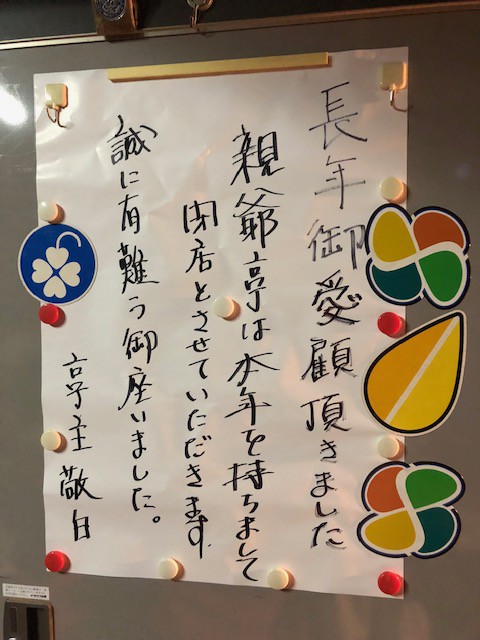 長年御愛顧頂きました
親爺亭は本年を持ちまして
閉店とさせていただきます
誠に有難う御座いました。
亭主 敬白